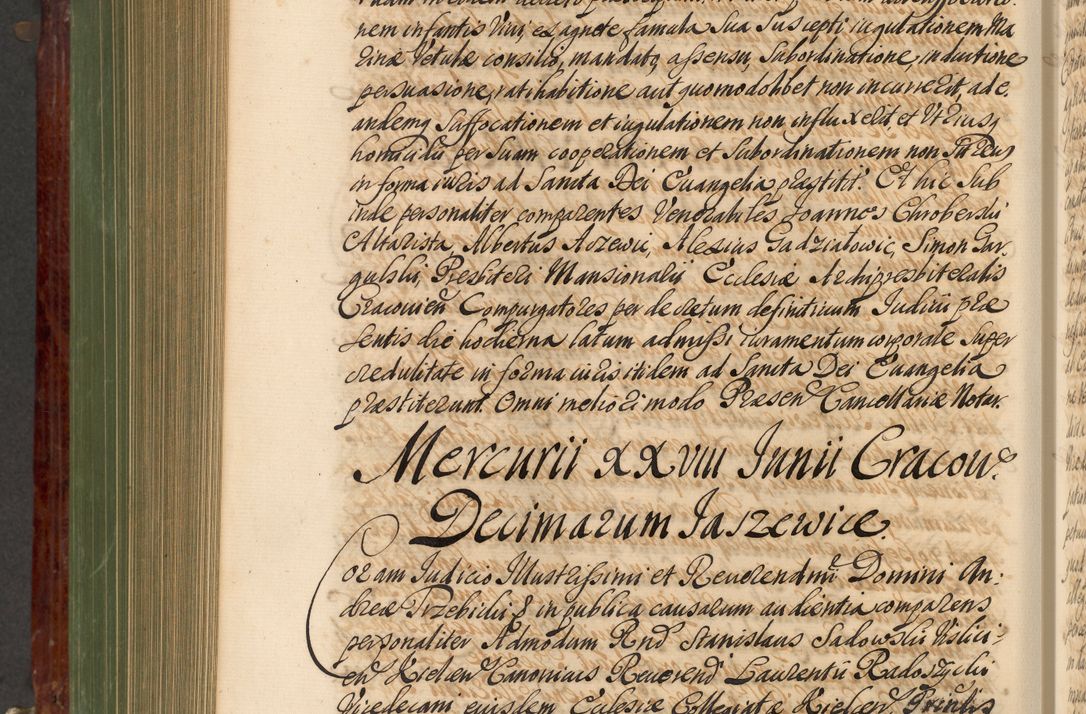 nem infantis Vivi, ex agnete famula Sua Suscepti iugulationem Ma
rinæ Vetulæ consilio, mandato, assensu, Subordinatione, inductione
persuasione, ratihabitione aut quomodolibet non incurrerit, ad e
andemq Suffocationem et iugulationem non influxerit, et Utriusq
homicidii per Suam cooperationem et Subordinationem non Sit Reus
in forma iuris ad Sancta Dei Euangelia præstitit. Et hic Sub
inde personaliter comparentes Venerabiles Joannes Chroberski
Altarista, Albertus Aszewic, Alexius Gadziałowic, Simon Gar
gulski, Presbiteri Mansionarij Ecclesiæ Archipresbiteralis
Cracouien Compurgatores per decretum definitiuum Iudicii præ
sentis die hodierna latum admissi iuramentum corporale Super
credulitate in forma iuris itidem ad Sancta Dei Euangelia
præstiterunt. Omni meliori modo Præsen Cancellariæ Notar.
Mercurii XXVIII Junii Cracou.
Decimarum Jaszewice.
Coram Judicio Illustrissimi et Reuerendmi Domini An:
dreæ Trzebicki & in publica causarum audientia comparens
personaliter Admodum Rnd Stanislaus Sadowski Vislici:
en Kielcen Canonicus Reuerend Laurentii Radoszycki
Vicedecani eiusdem Ecclesiæ Collegiatæ Kielcen